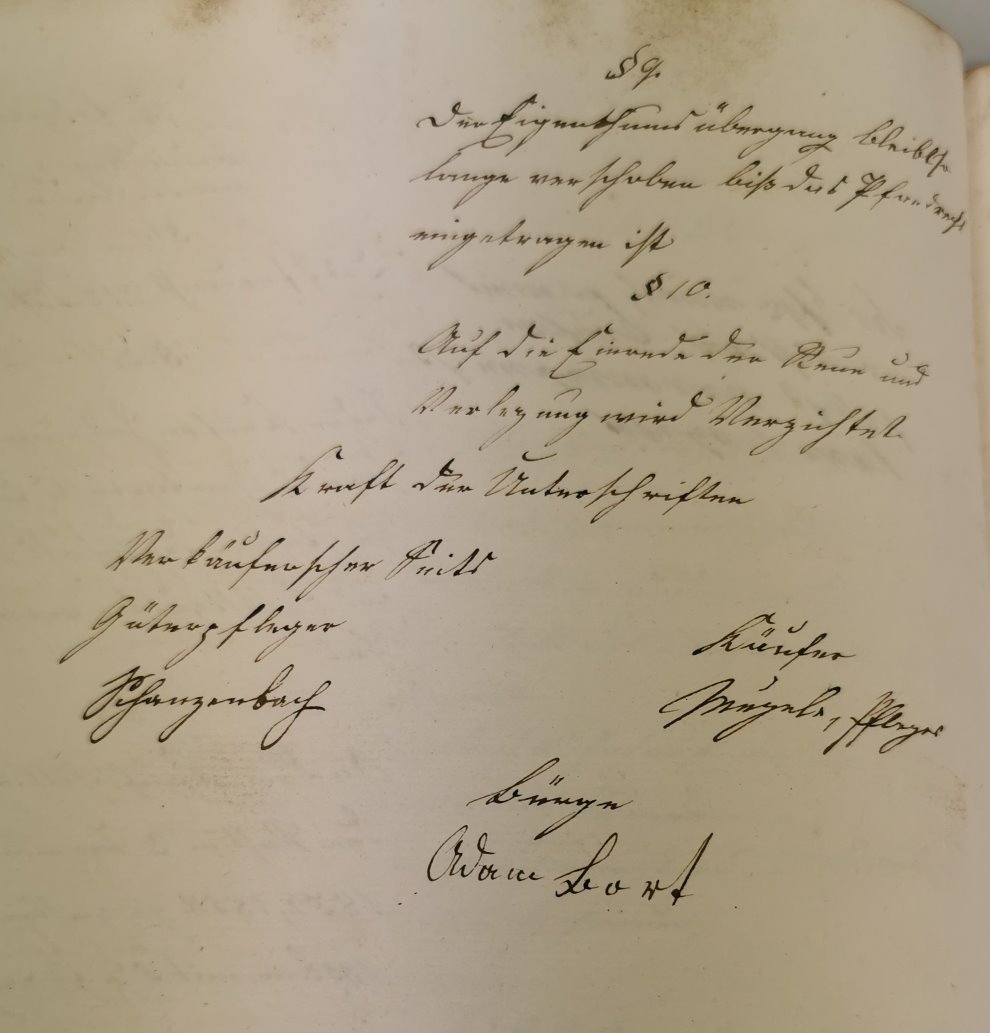 § 9.
Der Eigenthumsübergang bleibt so
lange verschoben biß das Pfandrecht
eingetragen ist
§ 10.
Auf die Einrede der Reue und
Verletzung wird Verzichtet.
Kraft der Unterschriften
Verkäuferischer Seits
Güterpfleger
Schanzenbach
Käufer
Mugele, Pfleger
Bürge
Adam Bort